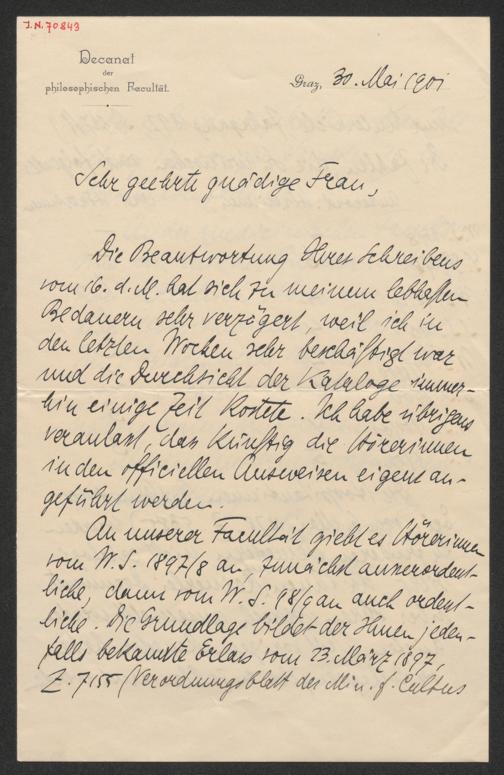 J.N. 70843
Decanat
der
philosophischen Facultät.
Graz, 30. Mai 1901
Sehr geehrte gnädige Frau,
Die Beantwortung Ihres Schreibens
vom 16. d. M. hat sich zu meinem lebhaften
Bedauern sehr verzögert, weil ich in
den letzten Wochen sehr beschäftigt war
und die Durchsicht der Kataloge immer-
hin einige Zeit kostete. Ich habe übrigens
veranlaßt, daß künftig die Hörerinnen
in den officiellen Ausweisen eigens an-
geführt werden.
An unserer Facultät giebt es Hörerinnen
vom W. S. 1897/8 an, zunächst ausserordent-
liche, dann vom W. S. 98/9 an auch ordent-
liche. Die Grundlage bildet der Ihnen jeden-
falls bekannte Erlass vom 23. März 1897,
Z. 7155 (Verordnungsblatt des Min. f. Cultus